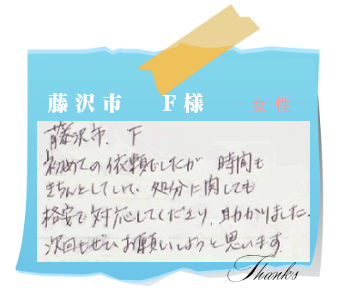 藤沢市 F様 女性
藤沢市. F
初めての依頼でしたが 時間も
きちんとしていて、処分に関しても
格安で対応してくださり、助かりました。
次回もぜひお願いしようと思います。
Thanks